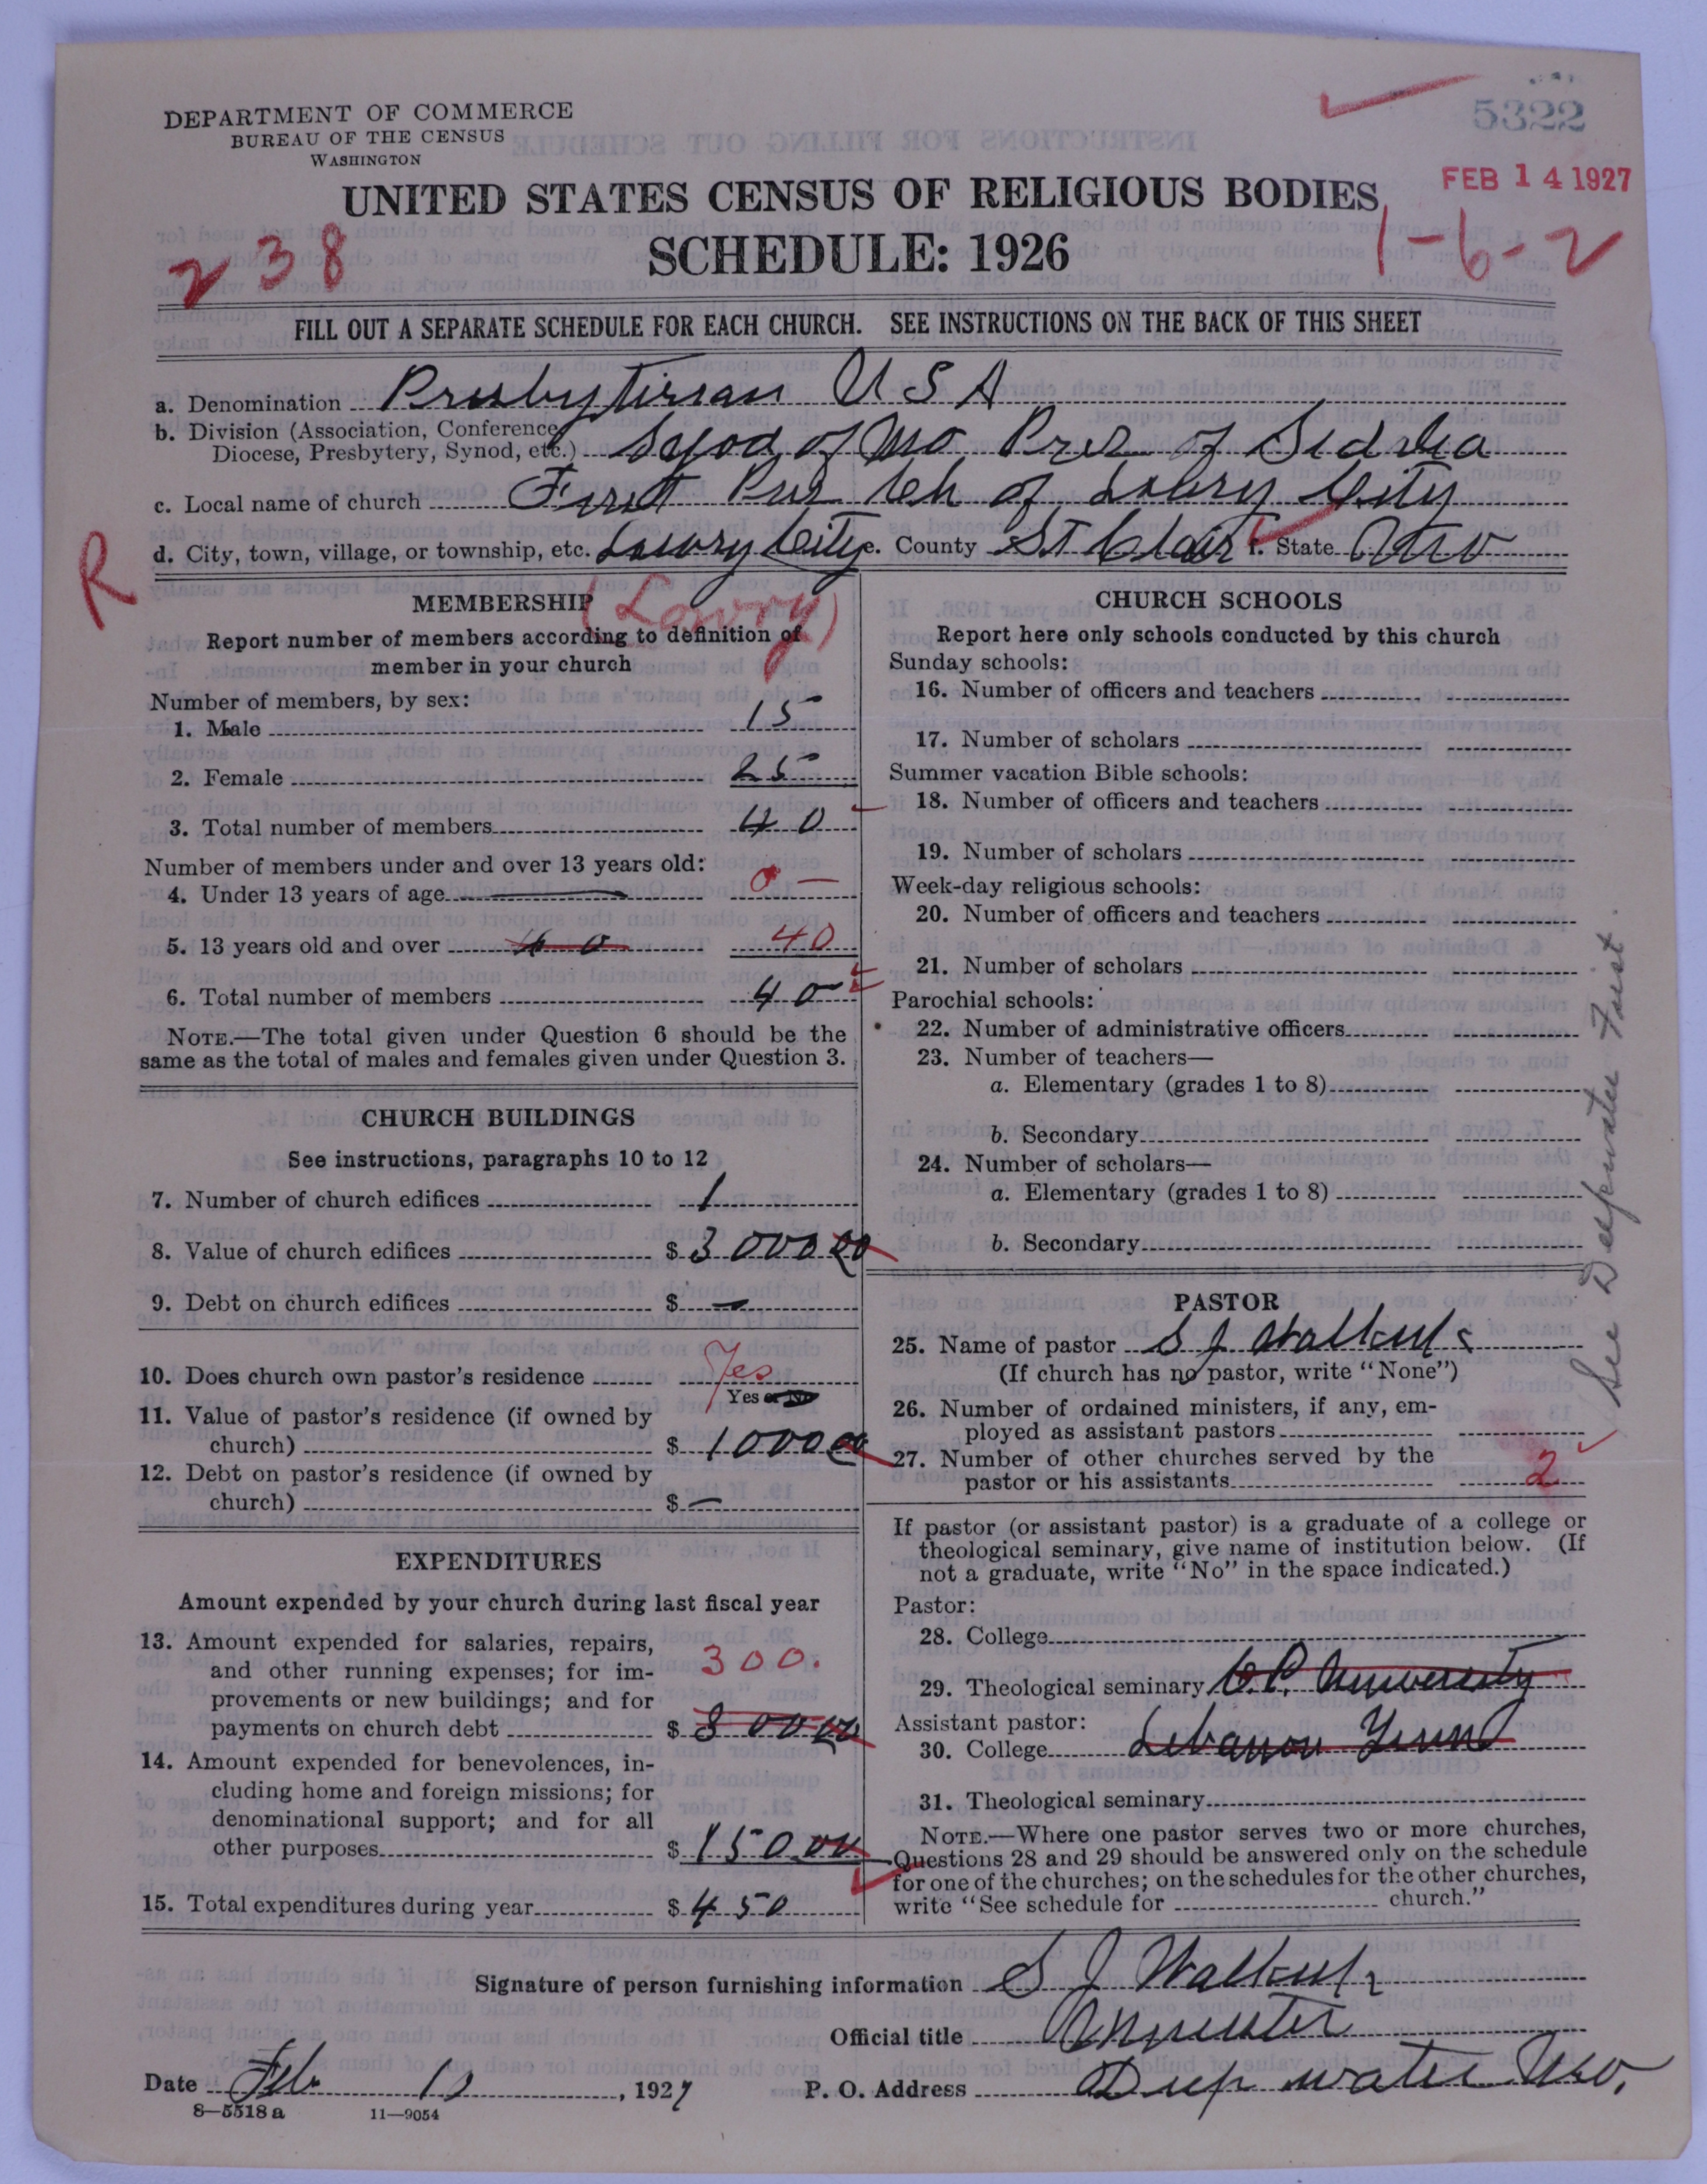 5322
DEPARTMENT OF COMMERCE
BUREAU OF THE CENSUS
WASHINGTON
FEB 14 1927
UNITED STATES CENSUS OF RELIGIOUS BODIES
SCHEDULE: 1926
238
1-6-2
FILL OUT A SEPARATE SCHEDULE FOR EACH CHURCH. SEE INSTRUCTIONS ON THE BACK OF THIS SHEET
a. Denomination Presbyterian USA
b. Division (Association, Conference,
Diocese, Presbytery, Synod, etc.) Synod of Mo Pres of Sedalia
c. Local name of church First Pres Ch of Lowry City
d. City, town, village, or township, etc. Lowry City e. County St Clair f. State Mo
R
(Lowry)
MEMBERSHIP
Report number of members according to definition of
member in your church
Number of members, by sex:
1. Male 15
2. Female 25
3. Total number of members 40
Number of members under and over 13 years old:
4. Under 13 years of age 0 —
5. 13 years old and over 40 40
6. Total number of members 40
NOTE.—The total given under Question 6 should be the
same as the total of males and females given under Question 3.
CHURCH BUILDINGS
See instructions, paragraphs 10 to 12
7. Number of church edifices 1
8. Value of church edifices $ 3000 00
9. Debt on church edifices $ —
10. Does church own pastor's residence Yes
Yes or No
11. Value of pastor's residence (if owned by
church) $ 1000 00
12. Debt on pastor's residence (if owned by
church) $ —
EXPENDITURES
Amount expended by your church during last fiscal year
13. Amount expended for salaries, repairs,
and other running expenses; for im-
provements or new buildings; and for
payments on church debt $ 300 00
300.
14. Amount expended for benevolences, in-
cluding home and foreign missions; for
denominational support; and for all
other purposes $ 150.00
15. Total expenditures during year $ 450
CHURCH SCHOOLS
Report here only schools conducted by this church
Sunday schools:
16. Number of officers and teachers
17. Number of scholars
Summer vacation Bible schools:
18. Number of officers and teachers
19. Number of scholars
Week-day religious schools:
20. Number of officers and teachers
21. Number of scholars
Parochial schools:
22. Number of administrative officers
23. Number of teachers—
a. Elementary (grades 1 to 8)
b. Secondary
24. Number of scholars—
a. Elementary (grades 1 to 8)
b. Secondary
See Deepwater First.
PASTOR
25. Name of pastor S J
(If church has no pastor, write "None")
26. Number of ordained ministers, if any, em-
ployed as assistant pastors
27. Number of other churches served by the
pastor or his assistants 2
If pastor (or assistant pastor) is a graduate of a college or
theological seminary, give name of institution below. (If
not a graduate, write "No" in the space indicated.)
Pastor:
28. College
29. Theological seminary C.P. University
Assistant pastor:
30. College Lebanon Tenn
31. Theological seminary
NOTE.—Where one pastor serves two or more churches,
Questions 28 and 29 should be answered only on the schedule
for one of the churches; on the schedules for the other churches,
write "See schedule for church."
Signature of person furnishing information S J
Official title Minister
Date Feb , 1927 P. O. Address Deepwater Mo.
8—5518 a 11—9054